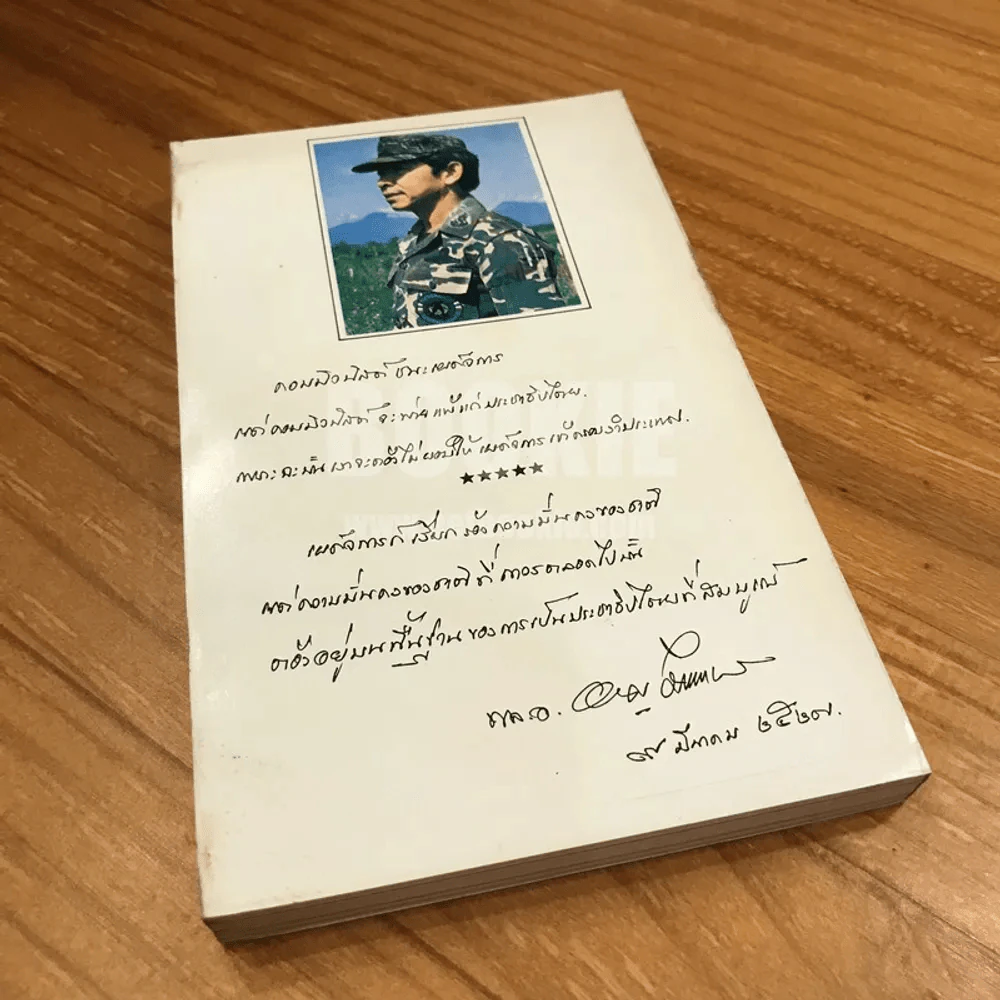 คอมมิวนิสต์ ชนะเผด็จการ
แต่คอมมิวนิสต์ จะพ่ายแพ้แก่ประชาธิปไตย.
เพราะฉะนั้น เราจะต้องไม่ยอมให้ เผด็จการ เข้าครอบงำประเทศ.
★★★★★
เผด็จการก็เรียกร้องความมั่นคงของชาติ
แต่ความมั่นคงของชาติ ที่ถาวรตลอดไปนั้น
ต้องอยู่บนพื้นฐาน ของการเป็นประชาธิปไตยที่สมบูรณ์
พล.อ.
๙ มีนาคม ๒๕๒๗.
BOOKIE